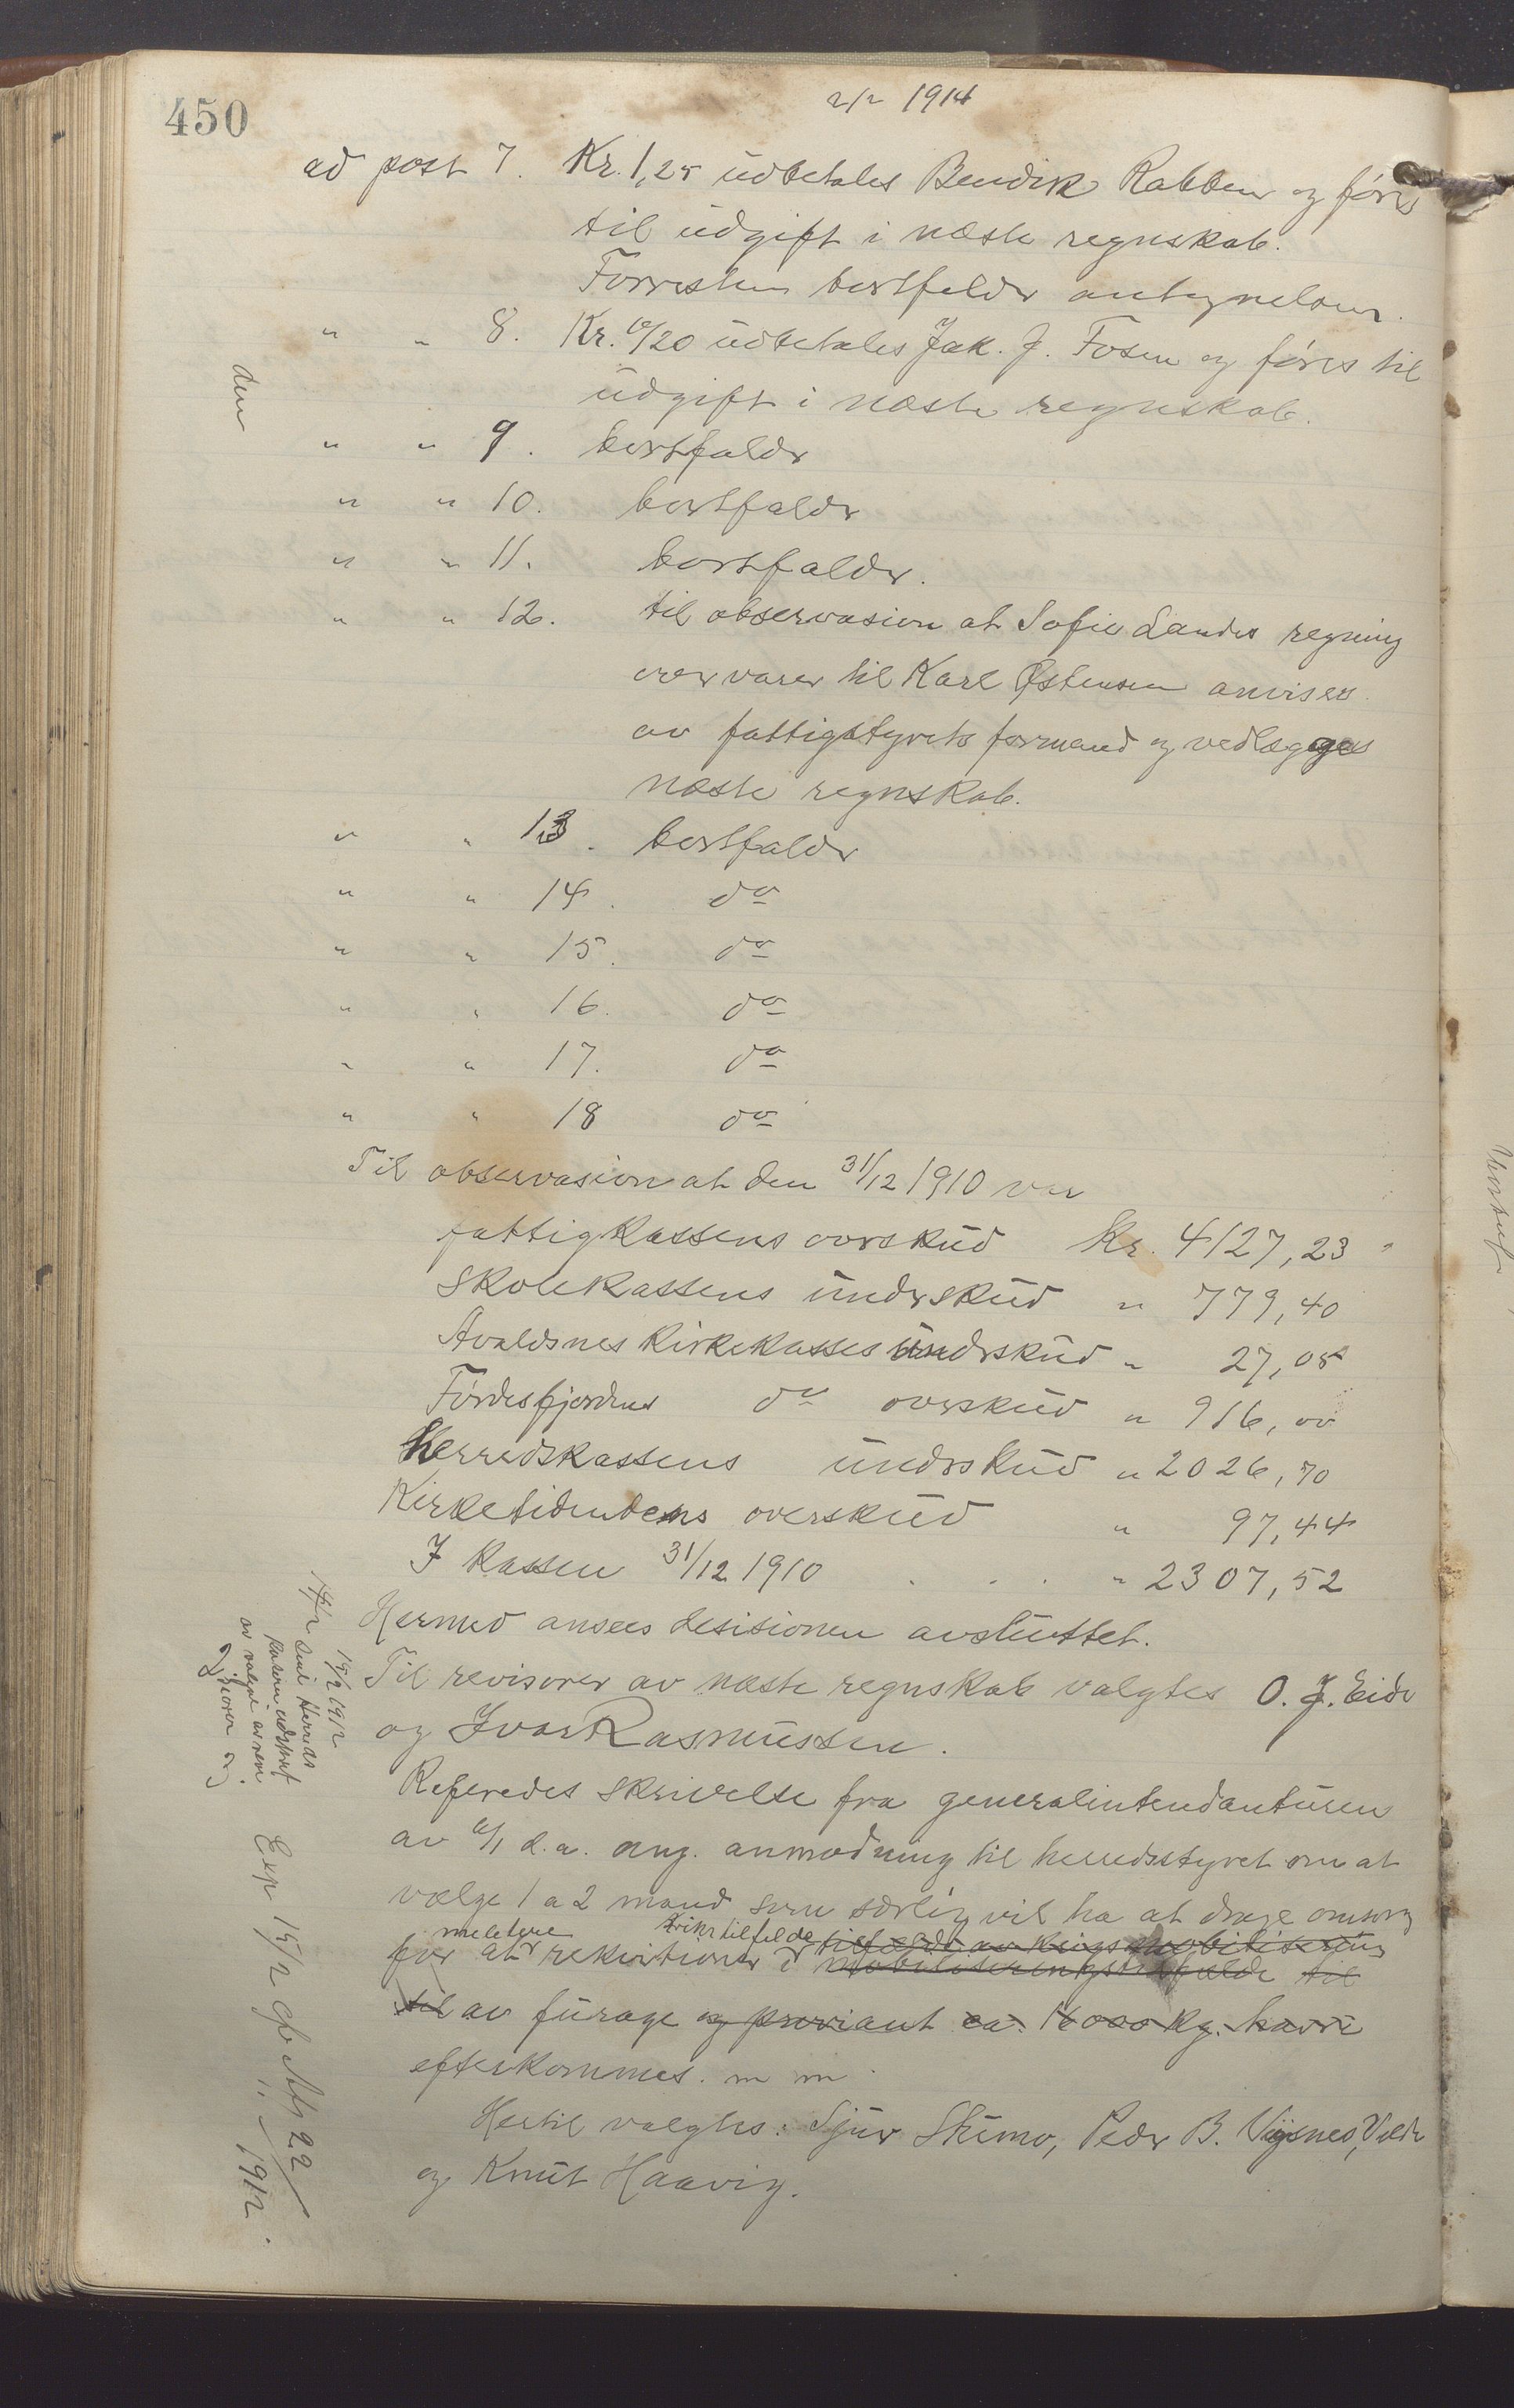 450
2/2 1914
ad post 7. Kr. 1,25 udbetales Bendik Rabben og føres
til udgift i næste regnskab.
Forresten bortfalder antegnelsen.
" " 8. Kr. 6/20 udbetales Jak. J. Fosen og føres til
udgift i næste regnskab.
den
" " 9. bortfalder
" " 10. bortfalder
" " 11. bortfalder.
" " 12. til observasion at Sofie Landes regning
over varer til Karl Østensen anvises
av fattigstyrets formand og vedlægges
næste regnskab.
" " 13. bortfalder
" " 14. do
" " 15. do
" " 16. do
" " 17. do
" " 18 do
Til observasion at den 31/12 1910 var
fattigkassens overskud Kr. 4127,23
Skolekassens underskud " 779,40
Avaldsnes kirkekasses underskud " 27,05
Førdesfjordens do overskud " 916,00
Herredskassens underskud " 2026,70
Kirketidendens overskud " 97,44
I kassen 31/12 1910 . . . " 2307,52
Hermed ansees desisionen avsluttet.
Til revisorer av næste regnskab valgtes O. J. Eide
og Ivar Rasmussen.
15/2 1912
Referedes skrivelse fra generalintendanturen
av 6/1 d.a. ang. anmodning til herredsstyret om at
vælge 1 a 2 mand som særlig vil ha at drage omsorg
meletære krikstilfelde tilfælde av krigsmobilisering
for at rekvisitioner i mobiliseringstilfælde til
til av furage og proviant ca. 16000 kg. havre
efterkommes. m m.
Hertil valgtes: Sjur Stumo, Peder B. Visnes, Velde
og Knut Haavig.
Exp 15/2 22 1912.